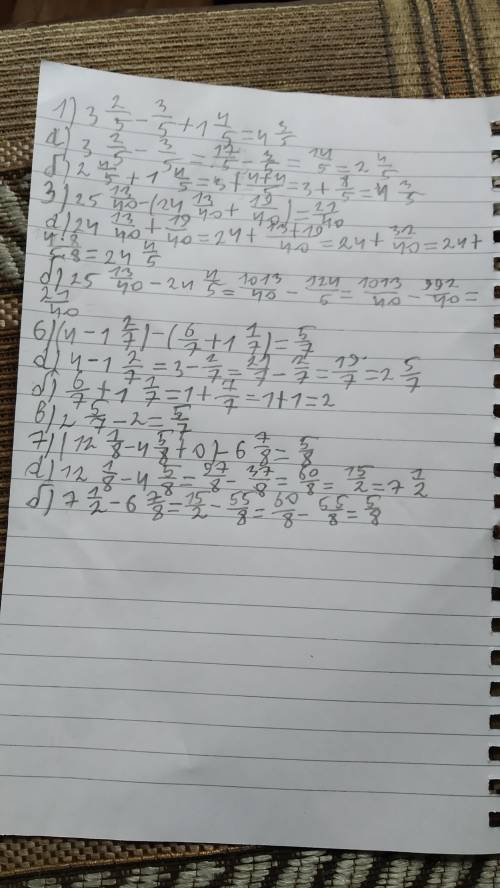 1) 3 2/5 - 3/5 + 1 4/5 = 4 3/5
а) 3 2/5 - 3/5 = 17/5 - 3/5 = 14/5 = 2 4/5
б) 2 4/5 + 1 4/5 = 3 + 4+4/5 = 3 + 8/5 = 4 3/5
3) 25 13/40 - (24 13/40 + 19/40) = 21/40
а) 24 13/40 + 19/40 = 24 + 13+19/40 = 24 + 32/40 = 24 +
4·8/5·8 = 24 4/5
б) 25 13/40 - 24 4/5 = 1013/40 - 124/5 = 1013/40 - 992/40 =
21/40
6) (4 - 1 2/7) - (6/7 + 1 1/7) = 5/7
а) 4 - 1 2/7 = 3 - 2/7 = 21/7 - 2/7 = 19/7 = 2 5/7
б) 6/7 + 1 1/7 = 1 + 7/7 = 1 + 1 = 2
в) 2 5/7 - 2 = 5/7
7) (12 1/8 - 4 5/8 + 0) - 6 7/8 = 5/8
а) 12 1/8 - 4 5/8 = 97/8 - 37/8 = 60/8 = 15/2 = 7 1/2
б) 7 1/2 - 6 7/8 = 15/2 - 55/8 = 60/8 - 55/8 = 5/8